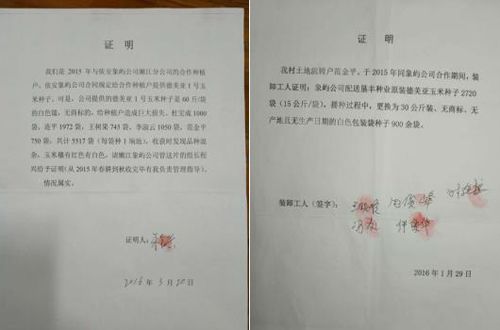 证 明
我们是 2015 年与依安象屿公司嫩江分公司的合作种植
户。依安象屿公司合同规定给合作种植户提供德美亚 1 号玉
米种子。可是，公司提供的德美亚 1 号玉米种子是 60 斤/袋
的白色袋，无商标的，给种植户造成巨大损失。杜宝成 1000
袋、连平 1972 袋、王树果 745 袋、李淑云 1050 袋、范金平
750 袋，共计 5517 袋（每袋种 1 垧地）。收获时发现品种混
杂，玉米穗有红色有白色，请嫩江象屿公司管这片的组长程
兴给予证明（从 2015 年春耕到秋收完毕有我负责管理指导）。
情况属实。
证明人：
2016 年 3 月 20 日
证 明
我村土地流转户范金平，于 2015 年同象屿公司合作期间，装
卸工人证明：象屿公司配送垦丰种业原装德美亚玉米种子 2720
袋（15 公斤/袋）。播种过程中，更换为 30 公斤装、无商标、无
产地且无生产日期的白色包装袋种子 900 余袋。
装卸工人（签字）：
2016 年 1 月 29 日